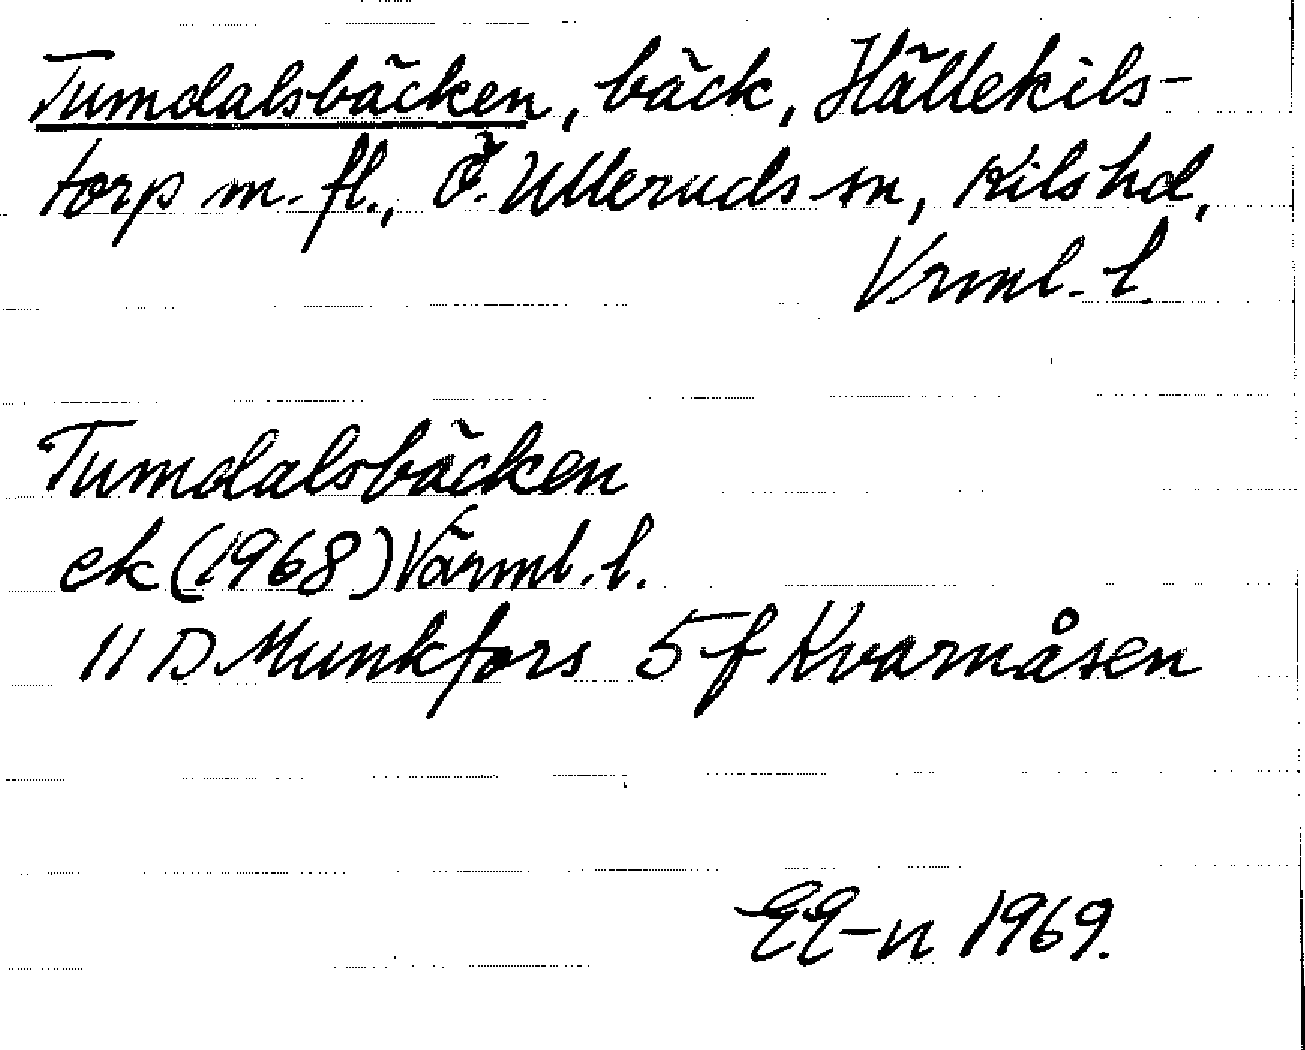 Tumdalsbäcken, bäck, Hällekils-
torp m. fl., Ö. Ulleruds sn, Kils hd,
Vrml. l.
Tumdalsbäcken
ek (1968) Värml. l.
11 D Munkfors 5 f Kvarnåsen
EE-n 1969.